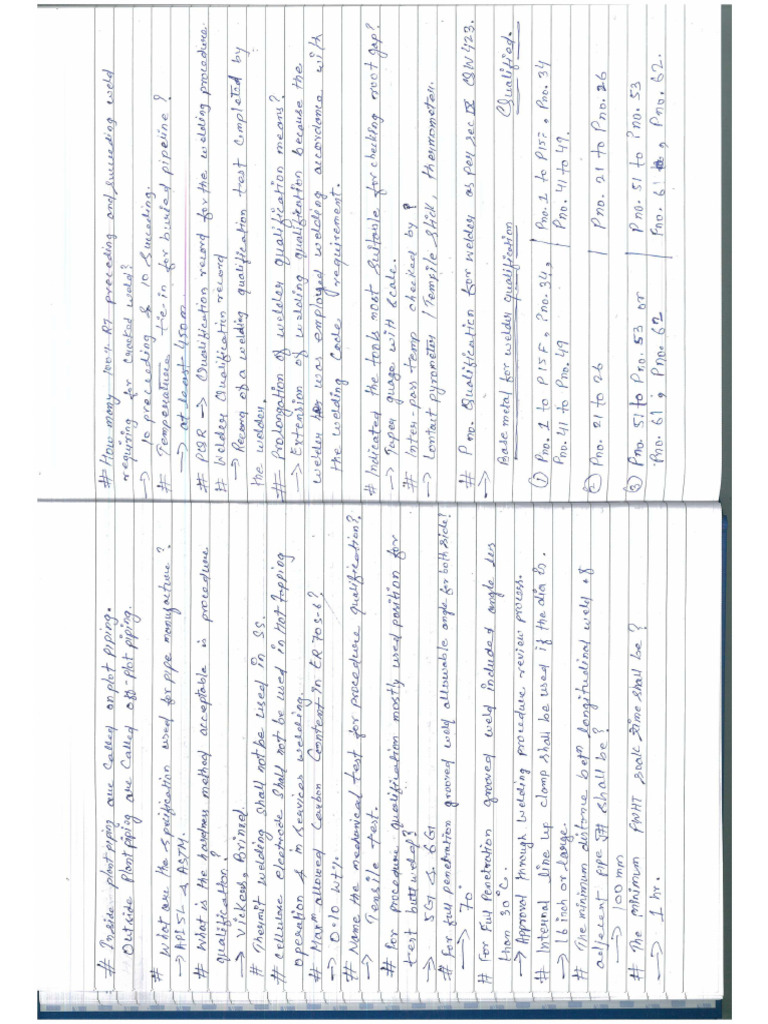 # Inside plant piping are called onplot piping.
Outside Plant piping are Called off-plot piping.
# What are the spicification used for pipe manufacture?
→ API5L & ASTM.
# What is the hardness method acceptable is procedure
qualification?
→ Vickers, Brinel.
# Thermit welding shall not be used in SS.
# Cellulose electrode shall not be used in Hot tapping
operation & in services welding.
# Maxm allowed Carbon Content in ER 70S-6?
→ 0.10 wt%.
# Name the mechanical test for procedure qualification?
→ Tensile test.
# For procedure qualification mostly used position for
test butt weld?
→ 5G & 6G
# For full penetration grooved weld allowable angle for both side!
→ 70°
# For Full Penetration grooved weld included angle less
than 30°C.
→ Approval through welding procedure review process.
# Internal line up clamp shall be used if the dia is.
→ 16 inch or large.
# The minimum distance betn longitudinal weld of
adjecent pipe JH shall be?
→ 100 mm
# The minimum PWHT soak time shall be?
→ 1 hr.
# How many 100% RT preceeding and succeeding weld
requiring for cracked weld?
→ 10 preceeding & 10 succeding.
# Temperature tie-in for buried pipeline?
→ at least 450m.
# PQR → Qualification record for the welding procedure.
# Welder Qualification record
→ Record of a welding qualification test completed by
the welder.
# Prolongation of welder qualification means?
→ Extension of welding qualification because the
welder was employed welding accordance with
the welding Code requirement.
# Indicated the tools most suitable for checking root gap?
→ Taper guage with scale.
# Inter-pass temp checked by?
→ Contact pyrometer / Tempile stick, thermometer.
# P no. Qualification for welder as per sec IX QW 423.
→
Base metal for welder qualification Qualified.
① Pno. 1 to P15F, Pno. 34, Pno. 1 to P15F, Pno. 34
Pno. 41 to Pno. 49 Pno. 41 to 49.
② Pno. 21 to 26 Pno. 21 to Pno. 26
③ Pno. 51 to Pno. 53 or Pno. 51 to Pno. 53
Pno. 61, Pno. 62 Pno. 61, Pno. 62.